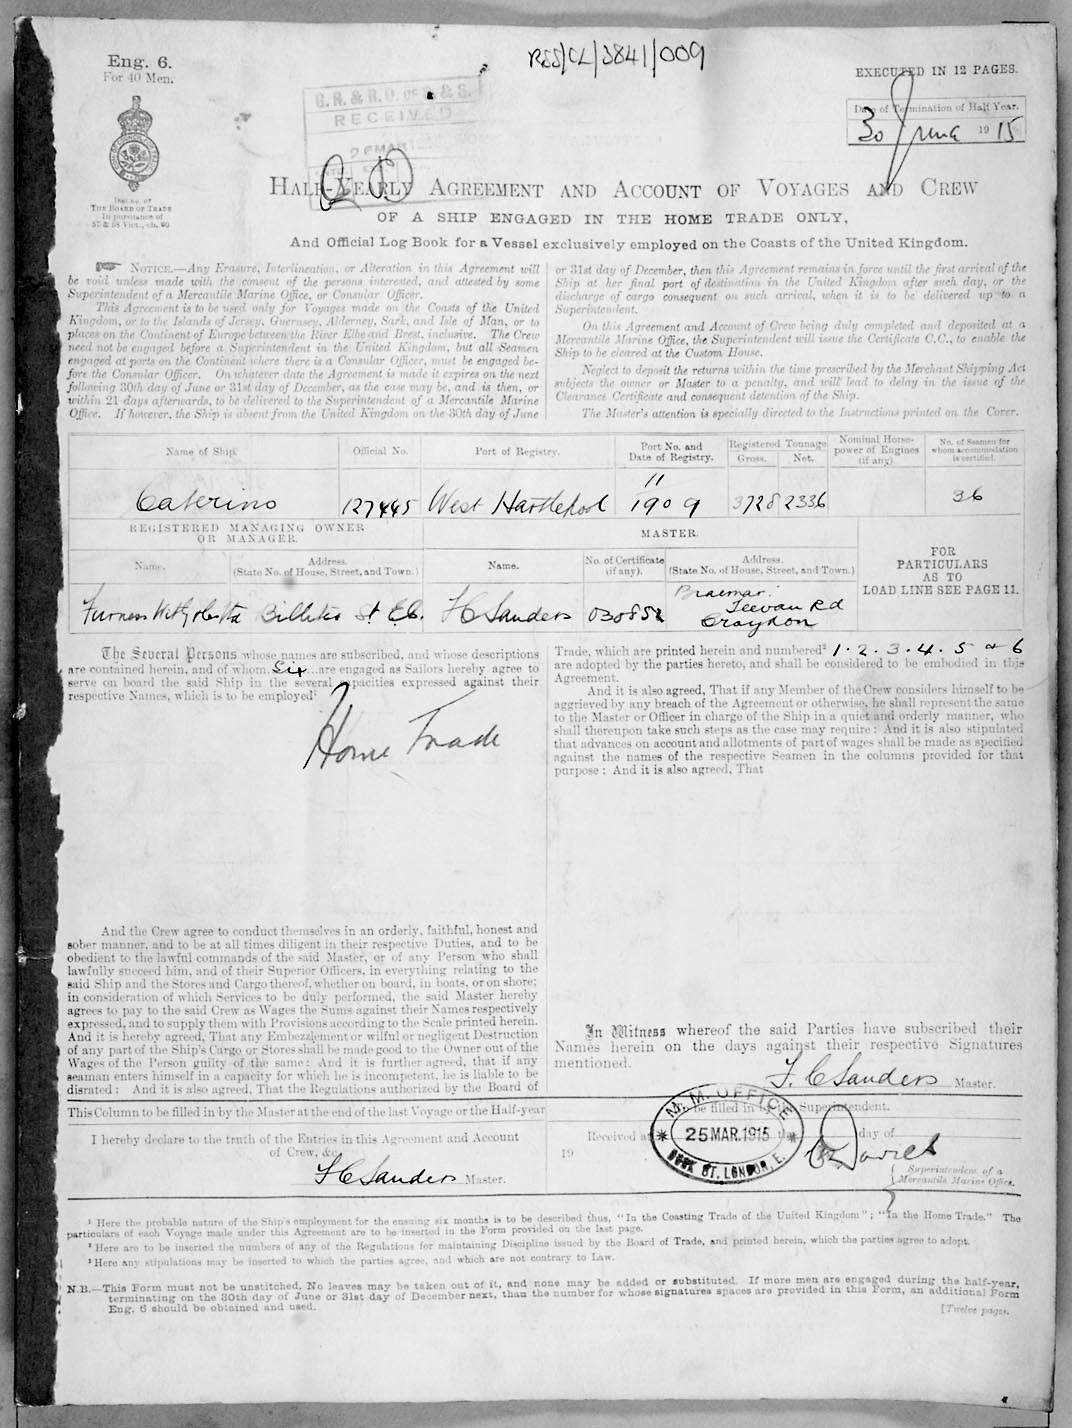 RSS/CL/3841/009
Eng. 6.
For 40 Men.
EXECUTED IN 12 PAGES.
G.R. & R.O. OF S. & S.
RECEIVED
Date of Termination of Half Year.
30 June 1915
ISSUED BY
THE BOARD OF TRADE
In pursuance of
57 & 58 Vict., ch. 60
HALF-YEARLY AGREEMENT AND ACCOUNT OF VOYAGES AND CREW
OF A SHIP ENGAGED IN THE HOME TRADE ONLY,
And Official Log Book for a Vessel exclusively employed on the Coasts of the United Kingdom.
NOTICE.—Any Erasure, Interlineation, or Alteration in this Agreement will
be void unless made with the consent of the persons interested, and attested by some
Superintendent of a Mercantile Marine Office, or Consular Officer.
This Agreement is to be used only for Voyages made on the Coasts of the United
Kingdom, or to the Islands of Jersey, Guernsey, Alderney, Sark, and Isle of Man, or to
places on the Continent of Europe between the River Elbe and Brest, inclusive. The Crew
need not be engaged before a Superintendent in the United Kingdom, but all Seamen
engaged at ports on the Continent where there is a Consular Officer, must be engaged be-
fore the Consular Officer. On whatever date the Agreement is made it expires on the next
following 30th day of June or 31st day of December, as the case may be, and is then, or
within 21 days afterwards, to be delivered to the Superintendent of a Mercantile Marine
Office. If however, the Ship is absent from the United Kingdom on the 30th day of June
or 31st day of December, then this Agreement remains in force until the first arrival of the
Ship at her final port of destination in the United Kingdom after such day, or the
discharge of cargo consequent on such arrival, when it is to be delivered up to a
Superintendent.
On this Agreement and Account of Crew being duly completed and deposited at a
Mercantile Marine Office, the Superintendent will issue the Certificate C.C., to enable the
Ship to be cleared at the Custom House.
Neglect to deposit the returns within the time prescribed by the Merchant Shipping Act
subjects the owner or Master to a penalty, and will lead to delay in the issue of the
Clearance Certificate and consequent detention of the Ship.
The Master's attention is specially directed to the Instructions printed on the Cover.
Name of Ship. Official No. Port of Registry. Port No. and Date of Registry. Registered Tonnage. Gross. Net. Nominal Horse-power of Engines (if any) No. of Seamen for whom accommodation is certified.
Caterino 127445 West Hartlepool 11 1909 3728 2336 36
REGISTERED MANAGING OWNER
OR MANAGER.
MASTER.
Name. Address. (State No. of House, Street, and Town.) Name. No. of Certificate (if any). Address. (State No. of House, Street, and Town.)
FOR
PARTICULARS
AS TO
LOAD LINE SEE PAGE 11.
Furness Withy & Co Ltd Billiter St E.C. F C Sanders 030852 Braemar. Teevan Rd Croydon
The Several Persons whose names are subscribed, and whose descriptions
are contained herein, and of whom Six are engaged as Sailors hereby agree to
serve on board the said Ship in the several capacities expressed against their
respective Names, which is to be employed¹
Home Trade
And the Crew agree to conduct themselves in an orderly, faithful, honest and
sober manner, and to be at all times diligent in their respective Duties, and to be
obedient to the lawful commands of the said Master, or of any Person who shall
lawfully succeed him, and of their Superior Officers, in everything relating to the
said Ship and the Stores and Cargo thereof, whether on board, in boats, or on shore;
in consideration of which Services to be duly performed, the said Master hereby
agrees to pay to the said Crew as Wages the Sums against their Names respectively
expressed, and to supply them with Provisions according to the Scale printed herein.
And it is hereby agreed, That any Embezzlement or wilful or negligent Destruction
of any part of the Ship's Cargo or Stores shall be made good to the Owner out of the
Wages of the Person guilty of the same: And it is further agreed, that if any
seaman enters himself in a capacity for which he is incompetent, he is liable to be
disrated: And it is also agreed, That the Regulations authorized by the Board of
Trade, which are printed herein and numbered² 1. 2. 3. 4. 5 & 6
are adopted by the parties hereto, and shall be considered to be embodied in this
Agreement.
And it is also agreed, That if any Member of the Crew considers himself to be
aggrieved by any breach of the Agreement or otherwise, he shall represent the same
to the Master or Officer in charge of the Ship in a quiet and orderly manner, who
shall thereupon take such steps as the case may require: And it is also stipulated
that advances on account and allotments of part of wages shall be made as specified
against the names of the respective Seamen in the columns provided for that
purpose: And it is also agreed, That
In Witness whereof the said Parties have subscribed their
Names herein on the days against their respective Signatures
mentioned.
F. C Sanders Master.
This Column to be filled in by the Master at the end of the last Voyage or the Half-year
I hereby declare to the truth of the Entries in this Agreement and Account
of Crew, &c.
F C Sanders Master.
To be filled in by the Superintendent.
Received at the day of
19
M. M. OFFICE
25 MAR. 1915
DOCK ST, LONDON, E.
Davies
Superintendent of a
Mercantile Marine Office.
¹ Here the probable nature of the Ship's employment for the ensuing six months is to be described thus, "In the Coasting Trade of the United Kingdom"; "In the Home Trade." The
particulars of each Voyage made under this Agreement are to be inserted in the Form provided on the last page.
² Here are to be inserted the numbers of any of the Regulations for maintaining Discipline issued by the Board of Trade, and printed herein, which the parties agree to adopt.
³ Here any stipulations may be inserted to which the parties agree, and which are not contrary to Law.
N.B.—This Form must not be unstitched. No leaves may be taken out of it, and none may be added or substituted. If more men are engaged during the half-year,
terminating on the 30th day of June or 31st day of December next, than the number for whose signatures spaces are provided in this Form, an additional Form
Eng. 6 should be obtained and used.
[Twelve pages.